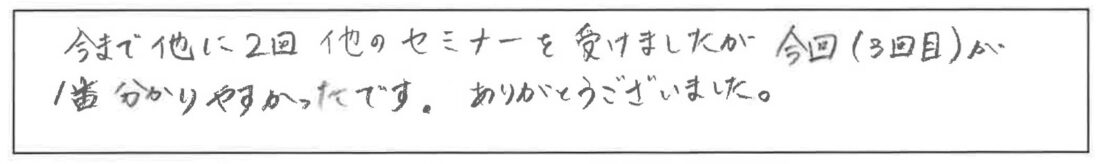 今まで他に2回 他のセミナーを受けましたが 今回(3回目)が
1番分かりやすかったです。 ありがとうございました。